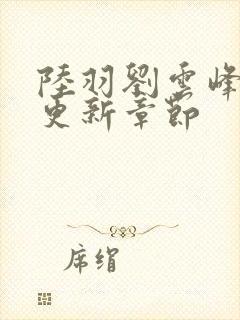 陸羽劉雲峰
更新章節
席绢